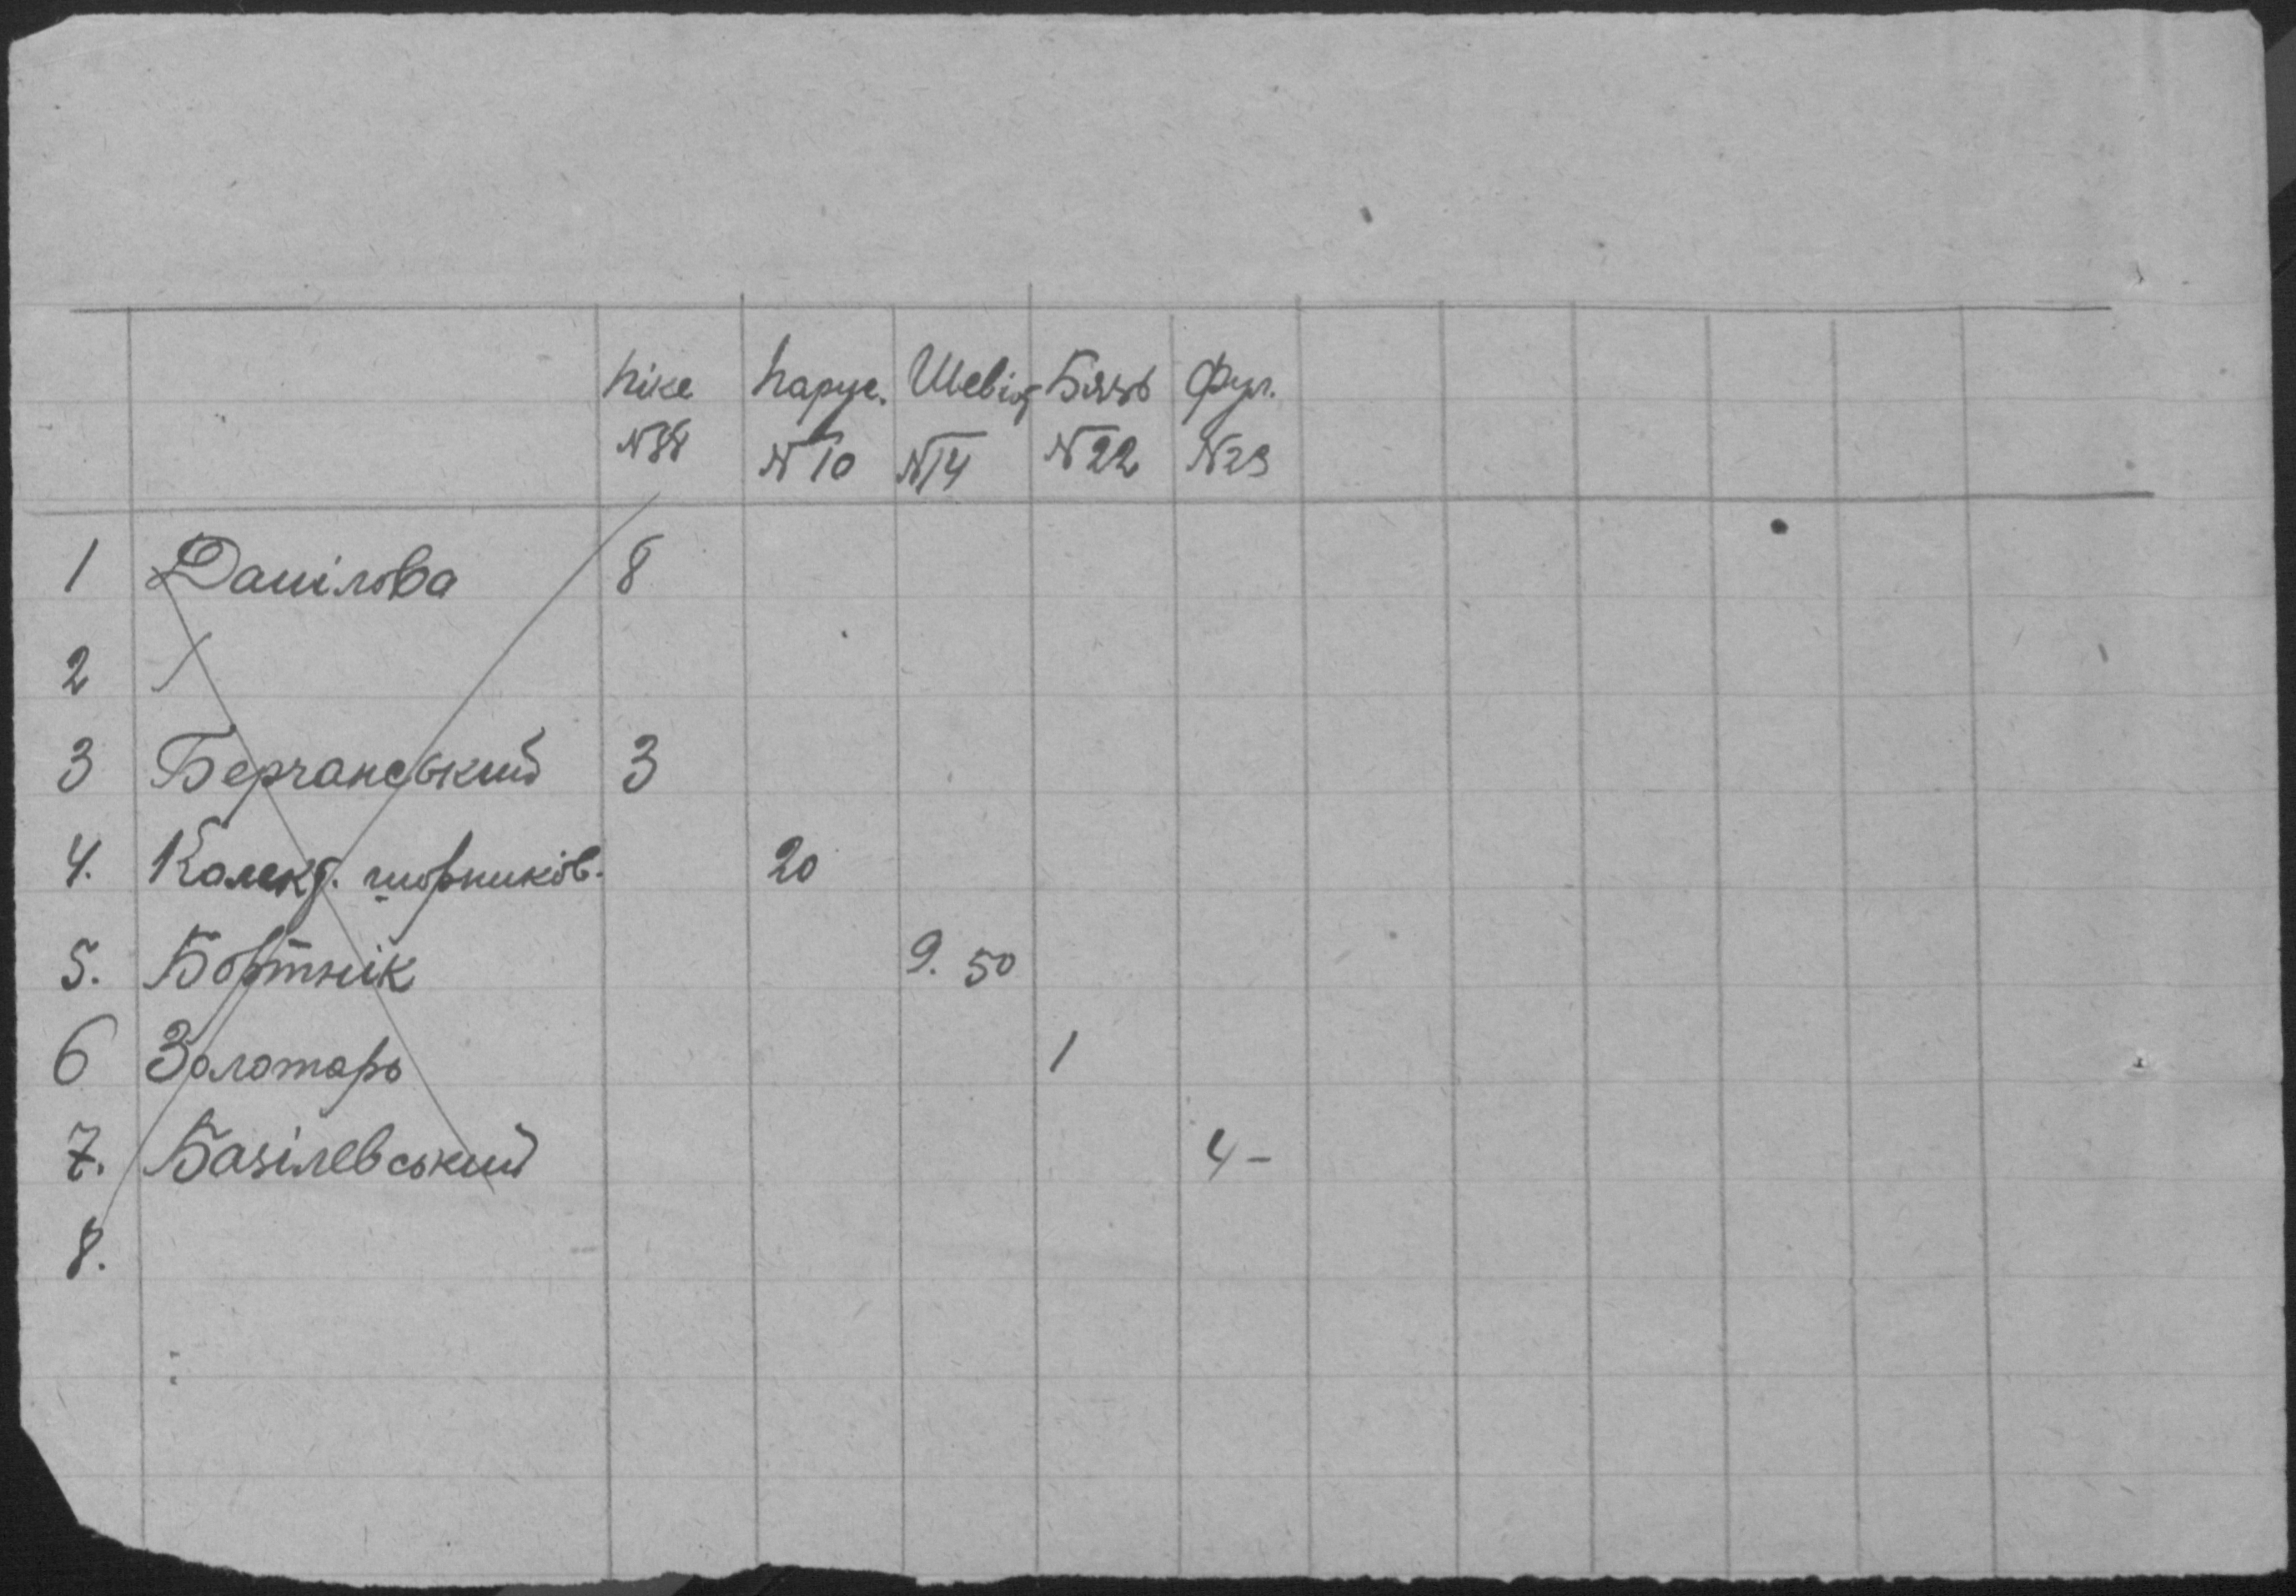 Піке Парус. Шевіот Бязь Фул.
№38 №10 №14 №22 №23
1 Данілова 8
2
3 Берчанський 3
4. Колект. шорників. 20
5. Бортнік 9. 50
6 Золотарь 1
7. Базілевський 4 –
8.